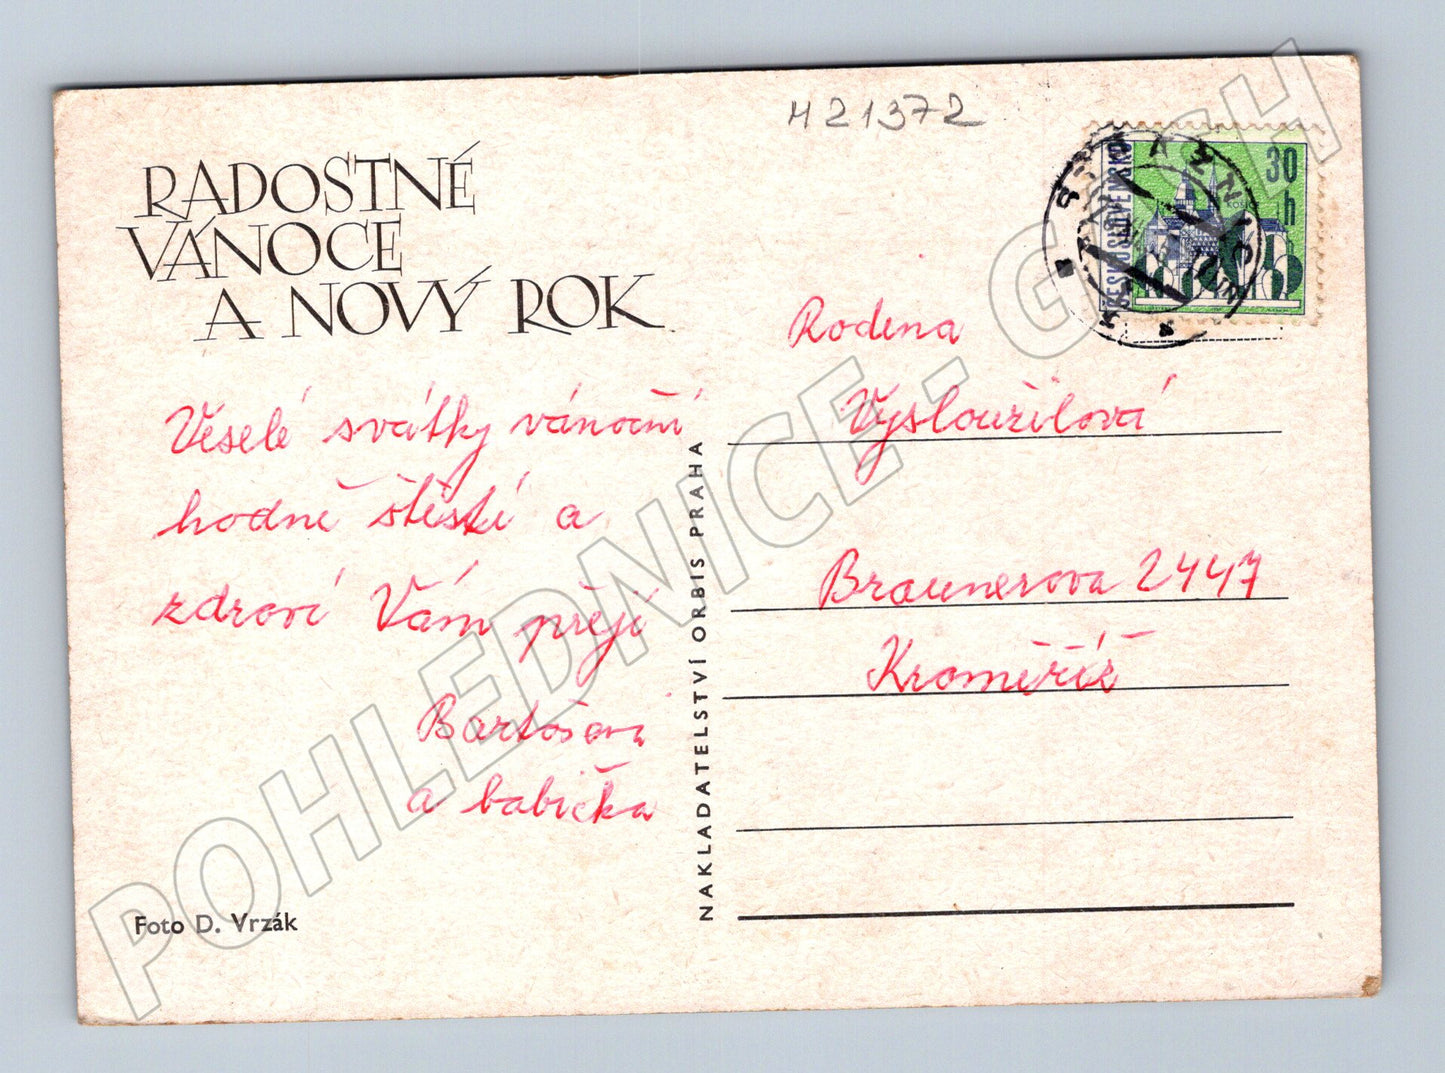 RADOSTNÉ
VÁNOCE
A NOVÝ ROK
Veselé svátky vánoční
hodně štěstí a
zdraví Vám přejí
Bartošova
a babička
Foto D. Vrzák
NAKLADATELSTVÍ ORBIS PRAHA
H21372
ČESKOSLOVENSKO
30
h
Rodina
Vysloužilová
Braunerova 2447
Kroměříž
POHLEDNICE - GASH